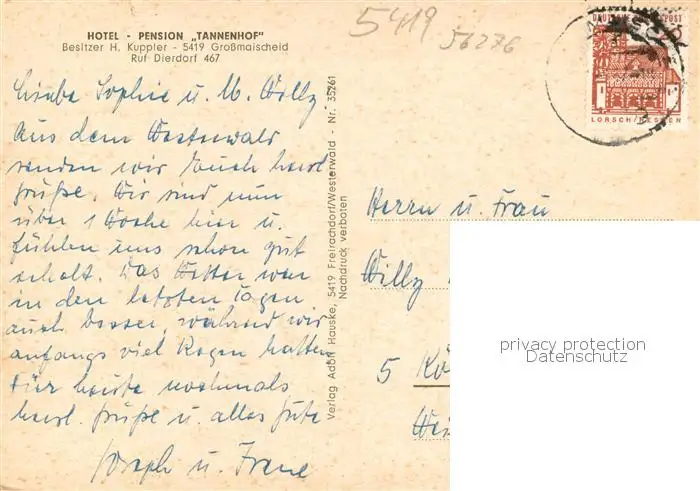 HOTEL - PENSION „TANNENHOF"
Besitzer H. Kuppler - 5419 Großmaischeid
Ruf Dierdorf 467
5419
56276
DEUTSCHE BUNDESPOST
20
LORSCH/HESSEN
Liebe Sophie u. M. Willy
Aus dem Westerwald
senden wir Euch herzl.
Grüße. Wir sind nun
über 1 Woche hier u.
fühlen uns schon gut
erholt. Das Wetter war
in den letzten Tagen
auch besser, während wir
anfangs viel Regen hatten
Für heute nochmals
herzl. Grüße u. alles Gute
Joseph u. Irene
Verlag Adolf Hauske, 5419 Freirachdorf/Westerwald - Nr. 35261
Nachdruck verboten
Herrn u. Frau
Willy
5 Kö
privacy protection
Datenschutz